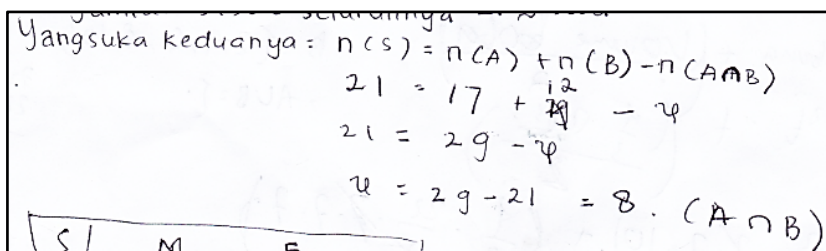 Yang suka keduanya : n(S) = n(A) + n(B) - n(A∩B)
21 = 17 + 12 - x
21 = 29 - x
x = 29 - 21 = 8 . (A ∩ B)
S